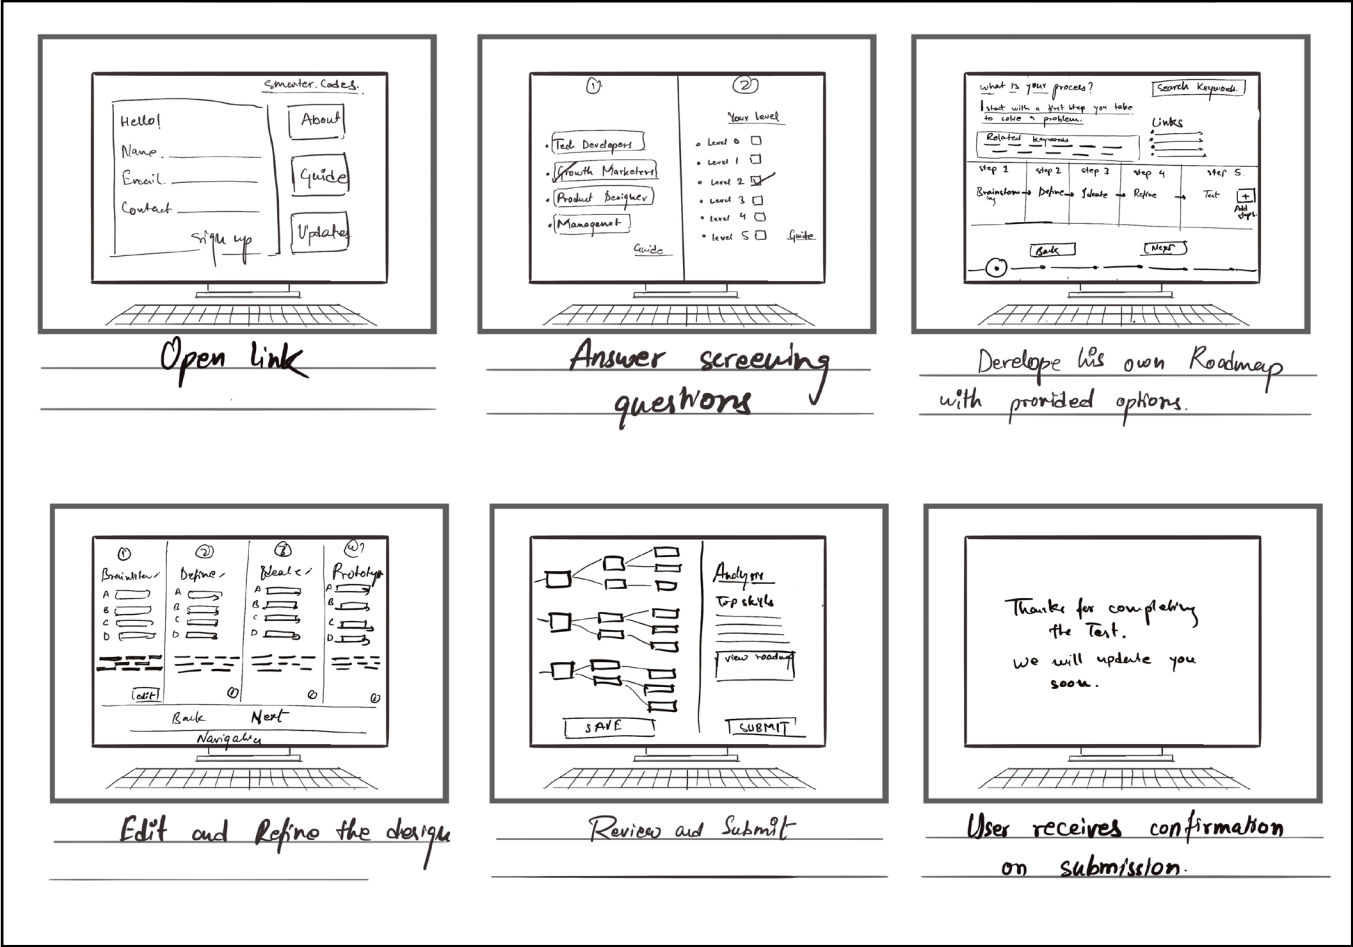 Smarter.Codes.
Hello!
Name
Email
Contact
Sign up
About
Guide
Updates
Open link
1
Tech Developers
Growth Marketers
Product Designer
Management
Guide
2
Your Level
Level 0
Level 1
Level 2
Level 3
Level 4
level 5
Guide
Answer screening
questions
What is your process?
I start with a first step you take
to solve a problem.
Related keywords
Search Keywords.
Links
step 1 step 2 step 3 step 4 step 5
Brainstorm
ing
Define
Ideate
Refine
Test
+
Add
steps
Back
Next
Develope his own Roadmap
with provided options.
1 2 3
Define
Ideate
Prototype
A A A A
B B B B
C C C C
D D D D
edit
Back Next
Navigation
Edit and Refine the design
Analysis
Top skills
view roadmap
SAVE
SUBMIT
Review and Submit
Thanks for completing
the Test.
we will update you
soon.
User receives confirmation
on submission.